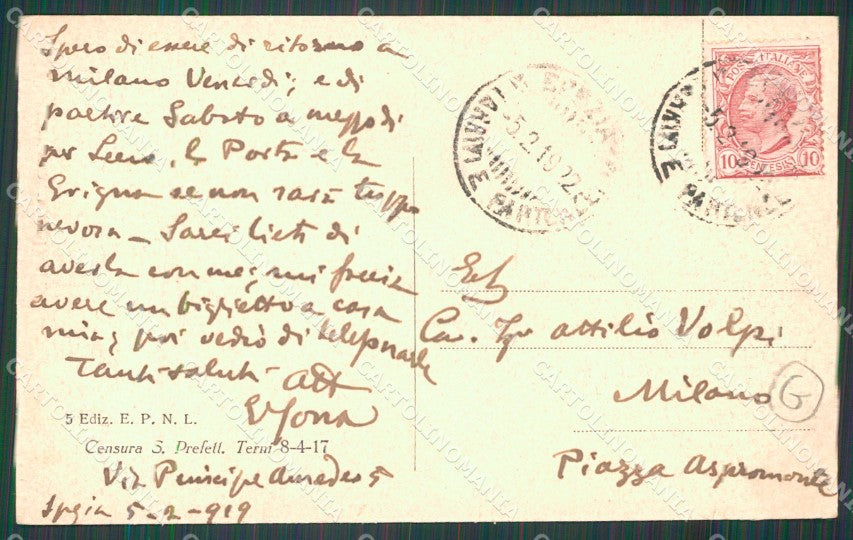 Spero di essere di ritorno a
Milano Venerdi; e di
partire Sabato a mezzodi
per Lecco, la Porta e la
Grigna se non sarà troppo
nevosa – Sarei lieto di
averla con me; mi faccia
avere un biglietto a casa
mia; poi vedrò di telefonarle
Tanti saluti
5 Ediz. E. P. N. L.
Censura S. Prefett. Terni 8-4-17
Via Principe Amedeo 5
Spezia 5-2-919
SPEZIA
5.2.19 22
PARTENZE
POSTE ITALIANE
10 CENTESIMI 10
5.2.19 22
PARTENZE
Cav. attilio Volpi
Milano
G
Piazza Aspromonte
CARTOLINOMANIA